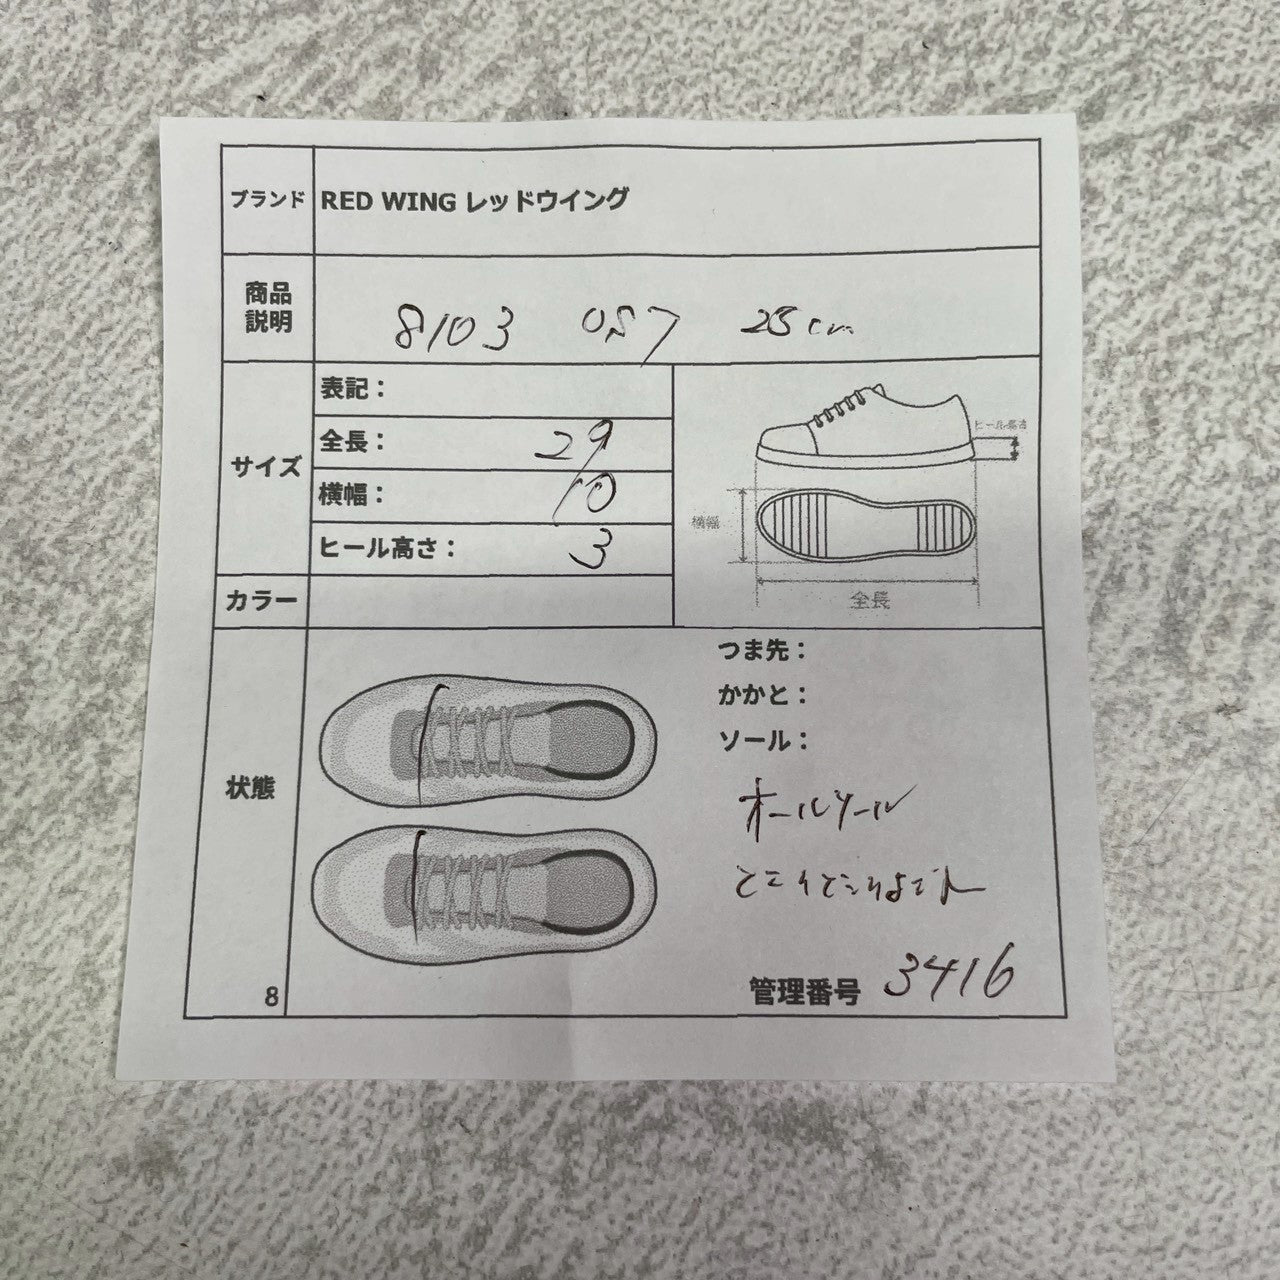 ブランド RED WING レッドウイング
商品説明 8103 087 25cm
サイズ
表記：
全長： 29
横幅： 10
ヒール高さ： 3
ヒール高さ
横幅
全長
カラー
状態
つま先：
かかと：
ソール：
オールソール
8
管理番号 3416